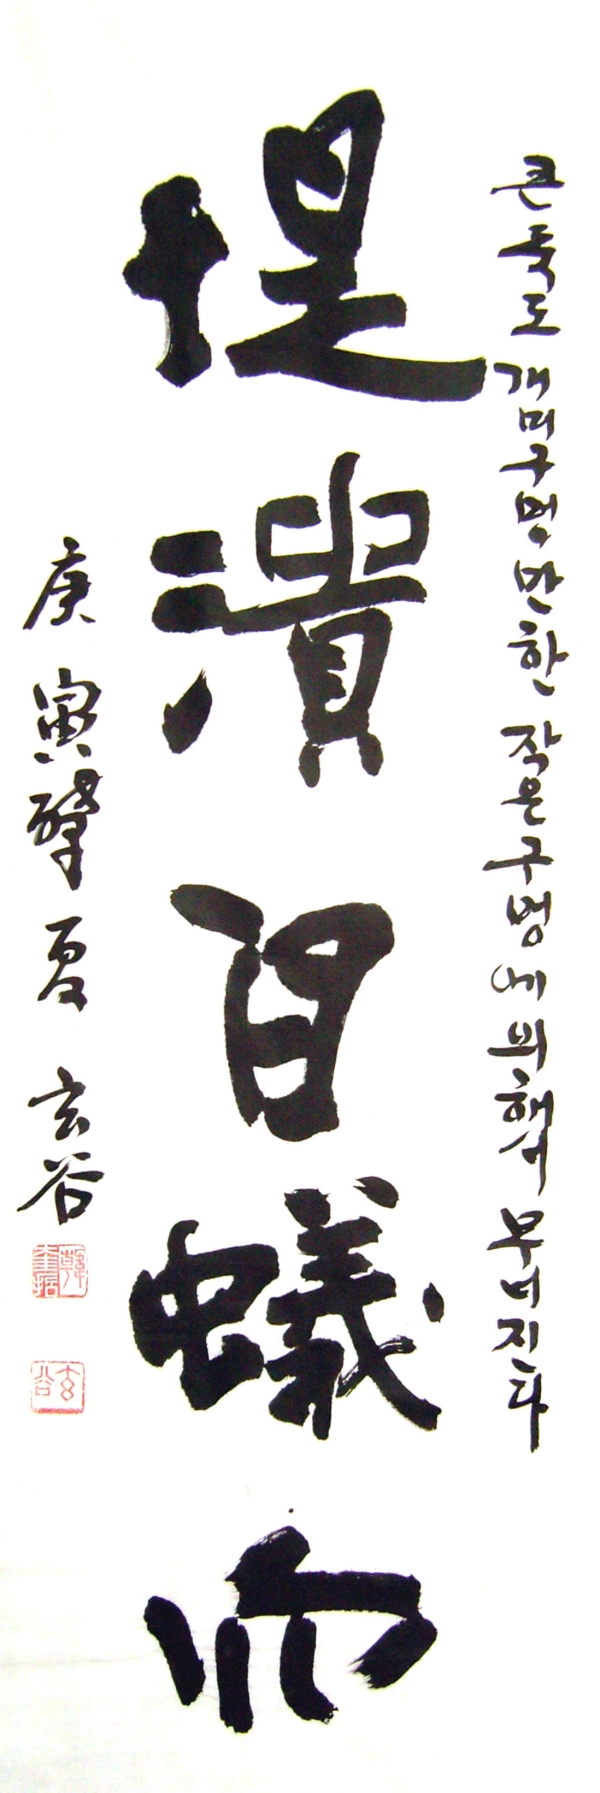 큰 둑도 개미구멍 만한 작은 구멍에 의해서 무너지다
堤潰自蟻穴
庚寅肇夏 玄谷
玄谷